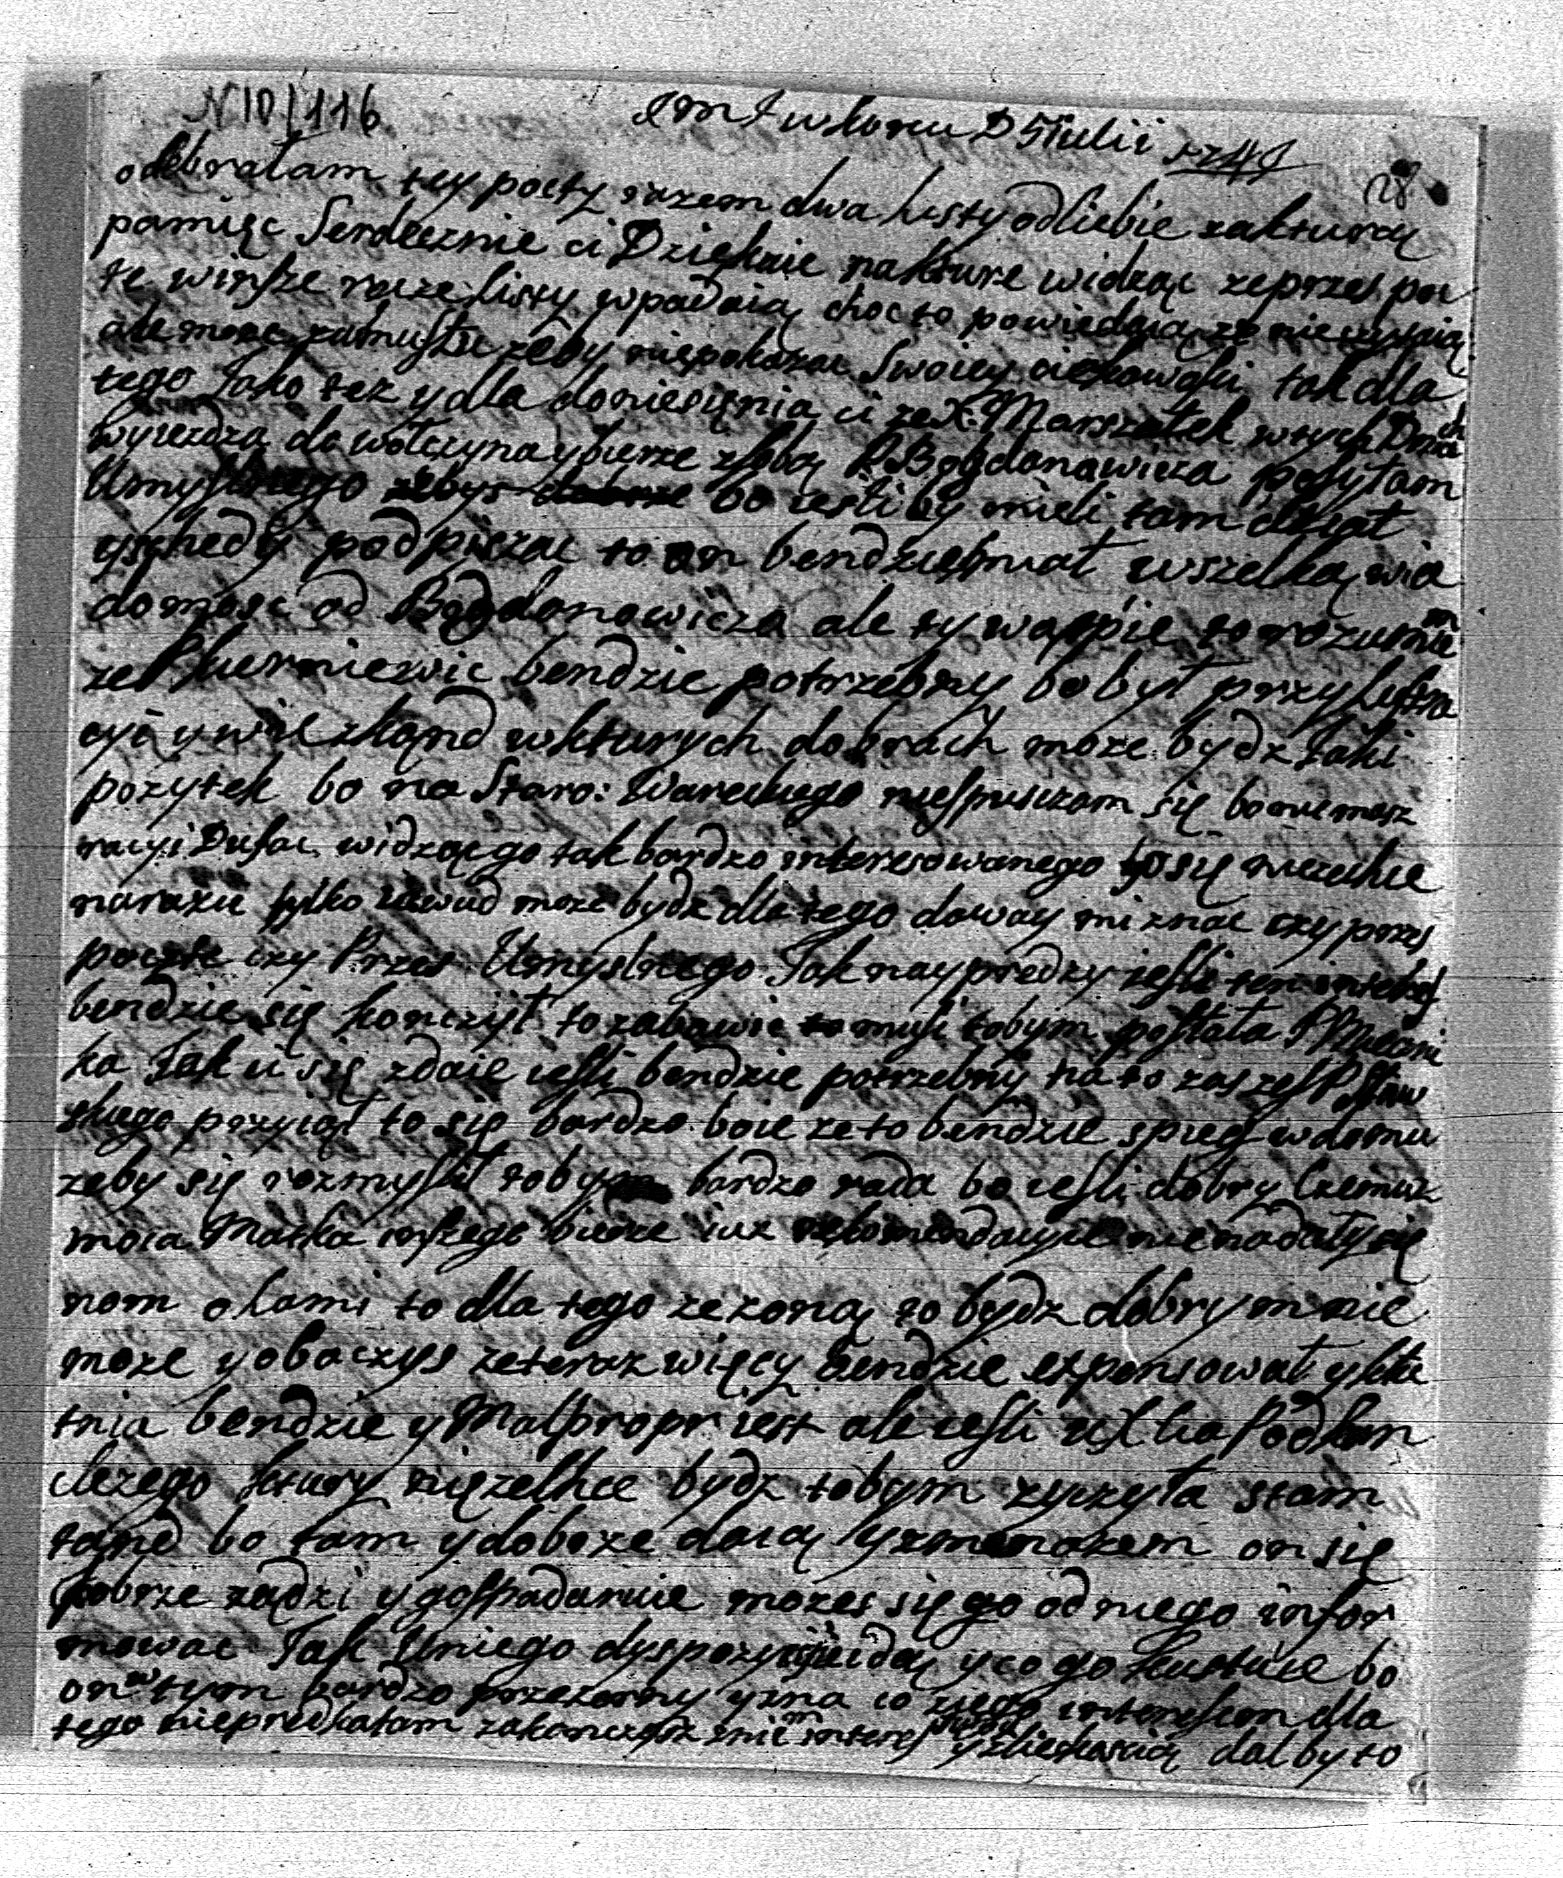 N10/116
I m J w domu D 5 Julii 1741
28
odebrałam tey poczty razem dwa listy od Ciebie za kturąy
pamięc Serdecznie ci Dziękuie na kture widząc ze przes poc
te winsze rocze listy wpadaią choc to powiedaią ze nieczynią
ale moze zamysłu zeby niepokazac Swoiey ciekowosci tak dla
tego Jako tez y dla doniesięnia ci ze X: Marszałek w tych Dniach
wyiezdza do wołczyna y bierze z sobą P Bogdanowicza posyłam
Umyslnego bo iesli by mieli tam dział
y schedy podpiszac to on bendzie miał wszelką wia
domosc od Bogdanowicza ale ty wątpie to rozumiem
ze P kierniewic bendzie potrzebny bo był przy lustra
cyi y wie zkąnd w kturych dobrach moze bydz Jaki
pozytek bo na Staro: Wareckiego niespusczam się bo nie masz
racyi Dufac widząc go tak bardzo interesowanego to się niezechce
narazic tylko zawad moze bydz dla tego daway mi znac czy przes
poczte czy Przes Umyslnego Jak nayprędzy iesli ten interes
bendzie się konczył to zabawic to mysli tobym posłała P
ka Jak ci się zdaie iesli bendzie potrzebny na to zaszes P Staw
skiego pozyciął to się bardzo boie ze to bendzie spieg w domu
zeby się rozmyslił tobym bardzo rada bo iesli dobry Czemuz
moia Matka inszego bierze iuz rekomendacyie nie nadały się
nam okami to dla tego ze zoną to bydz dobrym nie
moze y obaczys ze teraz więcy bendzie expensował y kłu
tnia bendzie y Malpropr iest ale iesli u X cia Podkan
clezego ktury niezelhce bydz tobym zyczyła stam
tąnd bo tam y doboze daią y z menazem on się
dobrze rządzi y gospadaruie mozes się go od niego infor
mowac Jak U niego dyspozycyie idą y co go kusztuie bo
on w tym bardzo przezorny y zna co z iego interesem dla
tego nieprzedkałam zakonczysz z niem interes y zbieskoscią dał by to